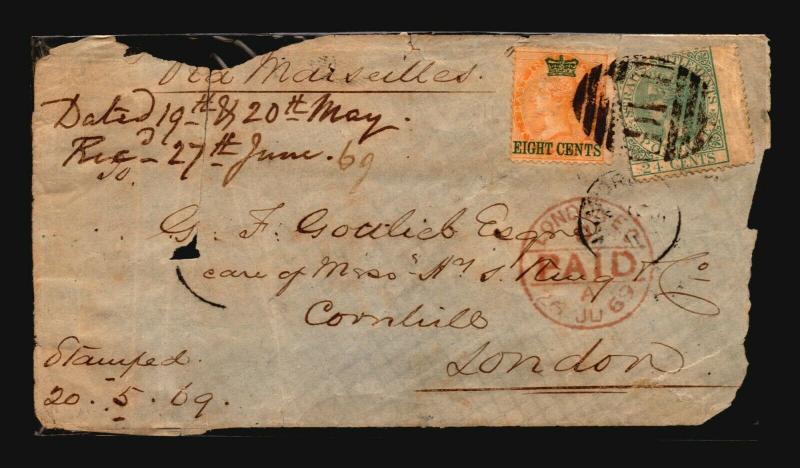 Via Marseilles.
Dated 19th & 20th May.
Recd 27th June. 69
EIGHT CENTS
24 CENTS
G. F. Gottlieb Esqre
care of Messrs H. S. King & Co
Cornhill
London.
LONDON
PAID
A
26 JU 69
Stamped.
20.5.69.